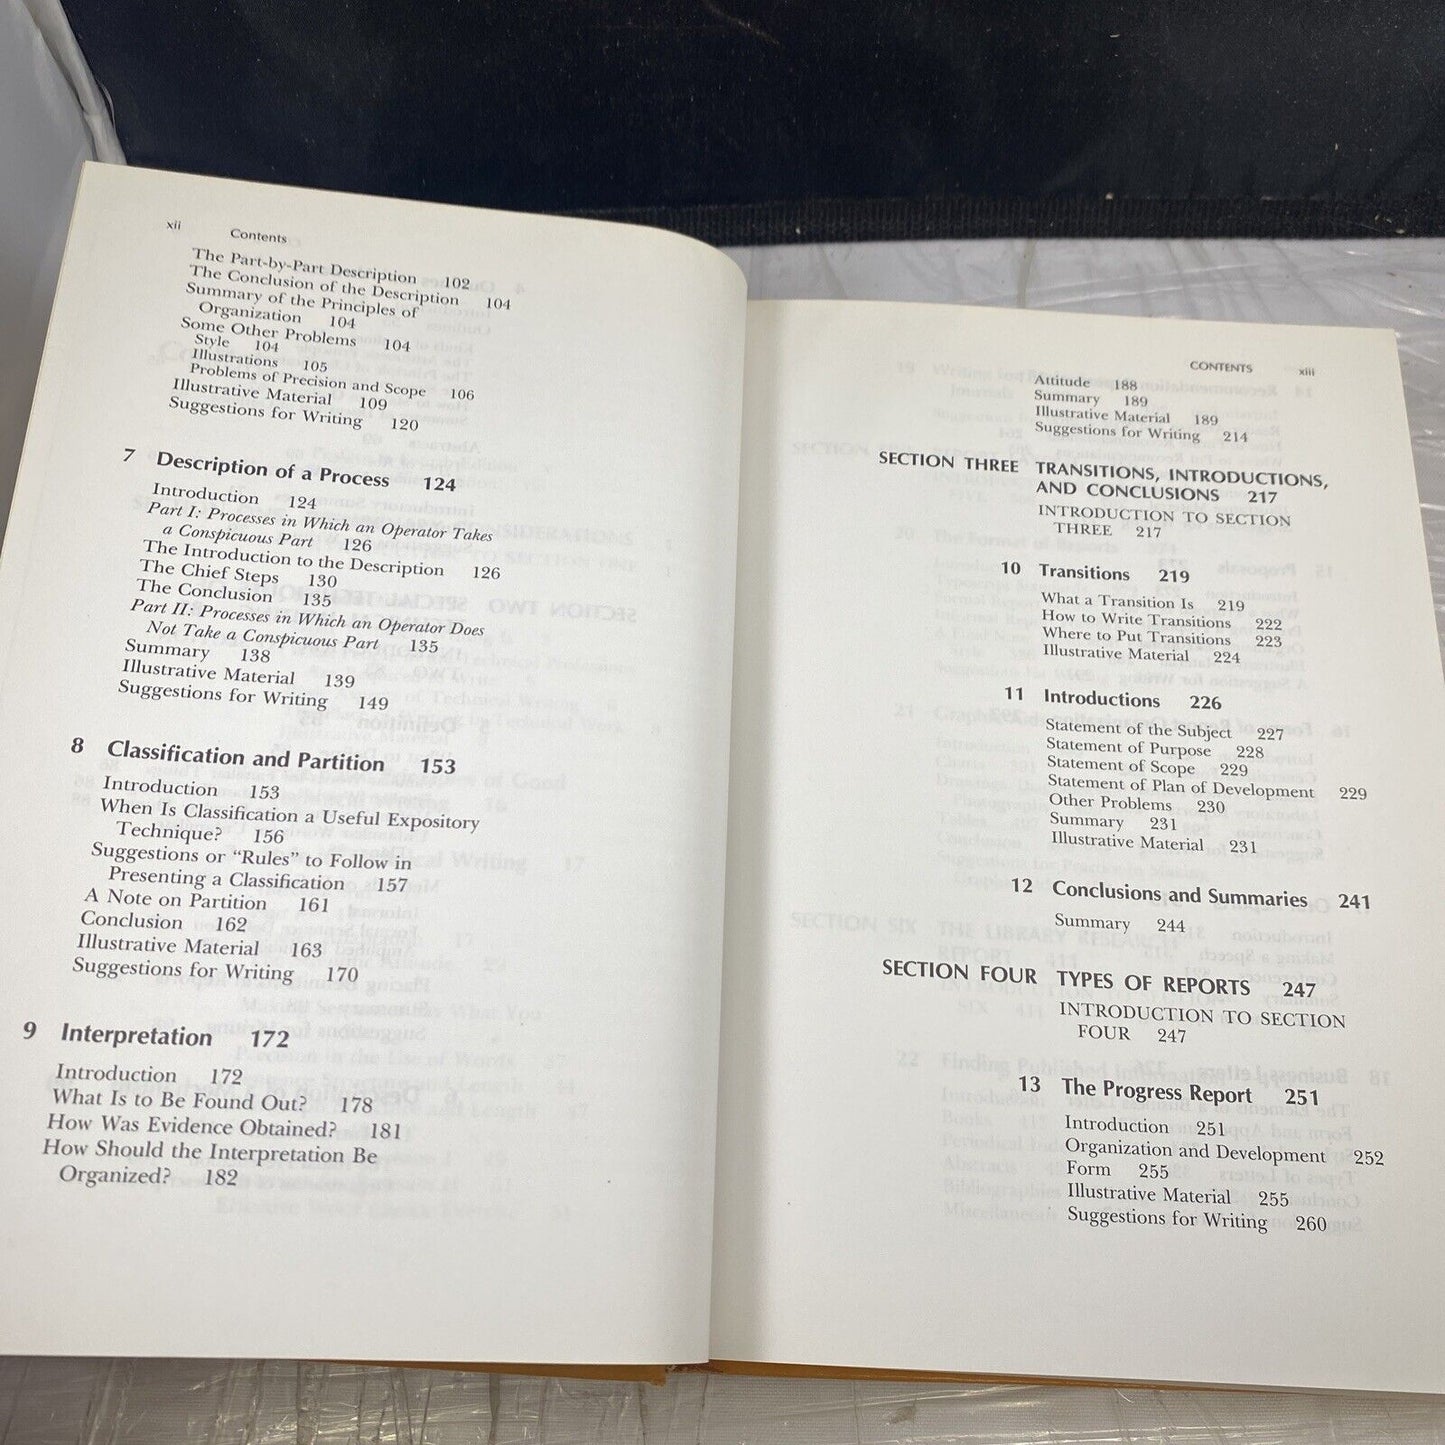 xii Contents
The Part-by-Part Description 102
The Conclusion of the Description 104
Summary of the Principles of
Organization 104
Some Other Problems 104
Style 104
Illustrations 105
Problems of Precision and Scope 106
Illustrative Material 109
Suggestions for Writing 120
7 Description of a Process 124
Introduction 124
Part I: Processes in Which an Operator Takes
a Conspicuous Part 126
The Introduction to the Description 126
The Chief Steps 130
The Conclusion 135
Part II: Processes in Which an Operator Does
Not Take a Conspicuous Part 135
Summary 138
Illustrative Material 139
Suggestions for Writing 149
8 Classification and Partition 153
Introduction 153
When Is Classification a Useful Expository
Technique? 156
Suggestions or “Rules” to Follow in
Presenting a Classification 157
A Note on Partition 161
Conclusion 162
Illustrative Material 163
Suggestions for Writing 170
9 Interpretation 172
Introduction 172
What Is to Be Found Out? 178
How Was Evidence Obtained? 181
How Should the Interpretation Be
Organized? 182
CONTENTS xiii
Attitude 188
Summary 189
Illustrative Material 189
Suggestions for Writing 214
SECTION THREE TRANSITIONS, INTRODUCTIONS,
AND CONCLUSIONS 217
INTRODUCTION TO SECTION
THREE 217
10 Transitions 219
What a Transition Is 219
How to Write Transitions 222
Where to Put Transitions 223
Illustrative Material 224
11 Introductions 226
Statement of the Subject 227
Statement of Purpose 228
Statement of Scope 229
Statement of Plan of Development 229
Other Problems 230
Summary 231
Illustrative Material 231
12 Conclusions and Summaries 241
Summary 244
SECTION FOUR TYPES OF REPORTS 247
INTRODUCTION TO SECTION
FOUR 247
13 The Progress Report 251
Introduction 251
Organization and Development 252
Form 255
Illustrative Material 255
Suggestions for Writing 260